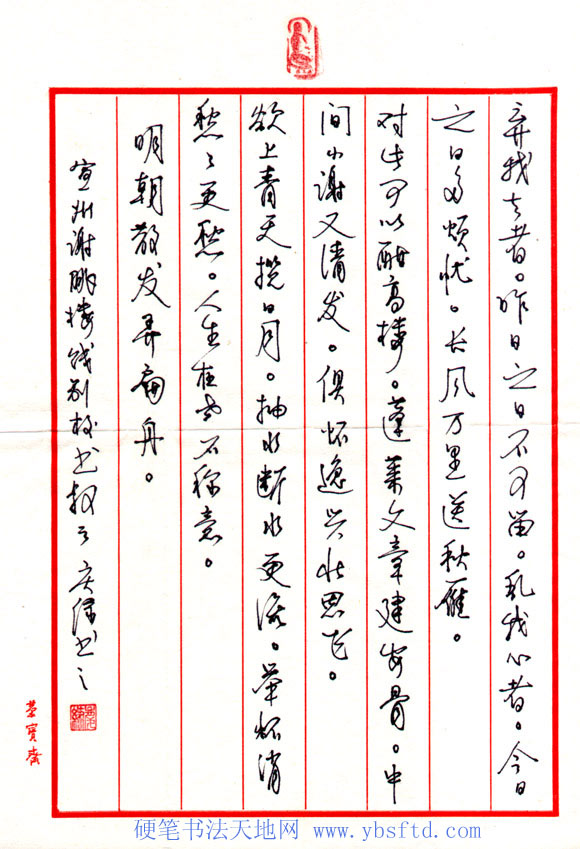 弃我去者。昨日之日不可留。乱我心者。今日
之日多烦忧。长风万里送秋雁。
对此可以酣高楼。蓬莱文章建安骨。中
间小谢又清发。俱怀逸兴壮思飞。
欲上青天揽日月。抽水断水更流。举杯消
愁々更愁。人生在世不称意。
明朝散发弄扁舟。
宣州谢朓楼饯别校书叔云 书之
荣宝斋
硬笔书法天地网 www.ybsftd.com